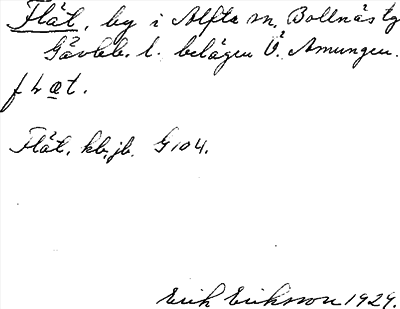 Flät, by i Alfta sn, Bollnäs tg
Gävleb. l. belägen V. Amungen.
flæt.
Flät, kb, jb. G 104.
Erik Eriksson 1929.